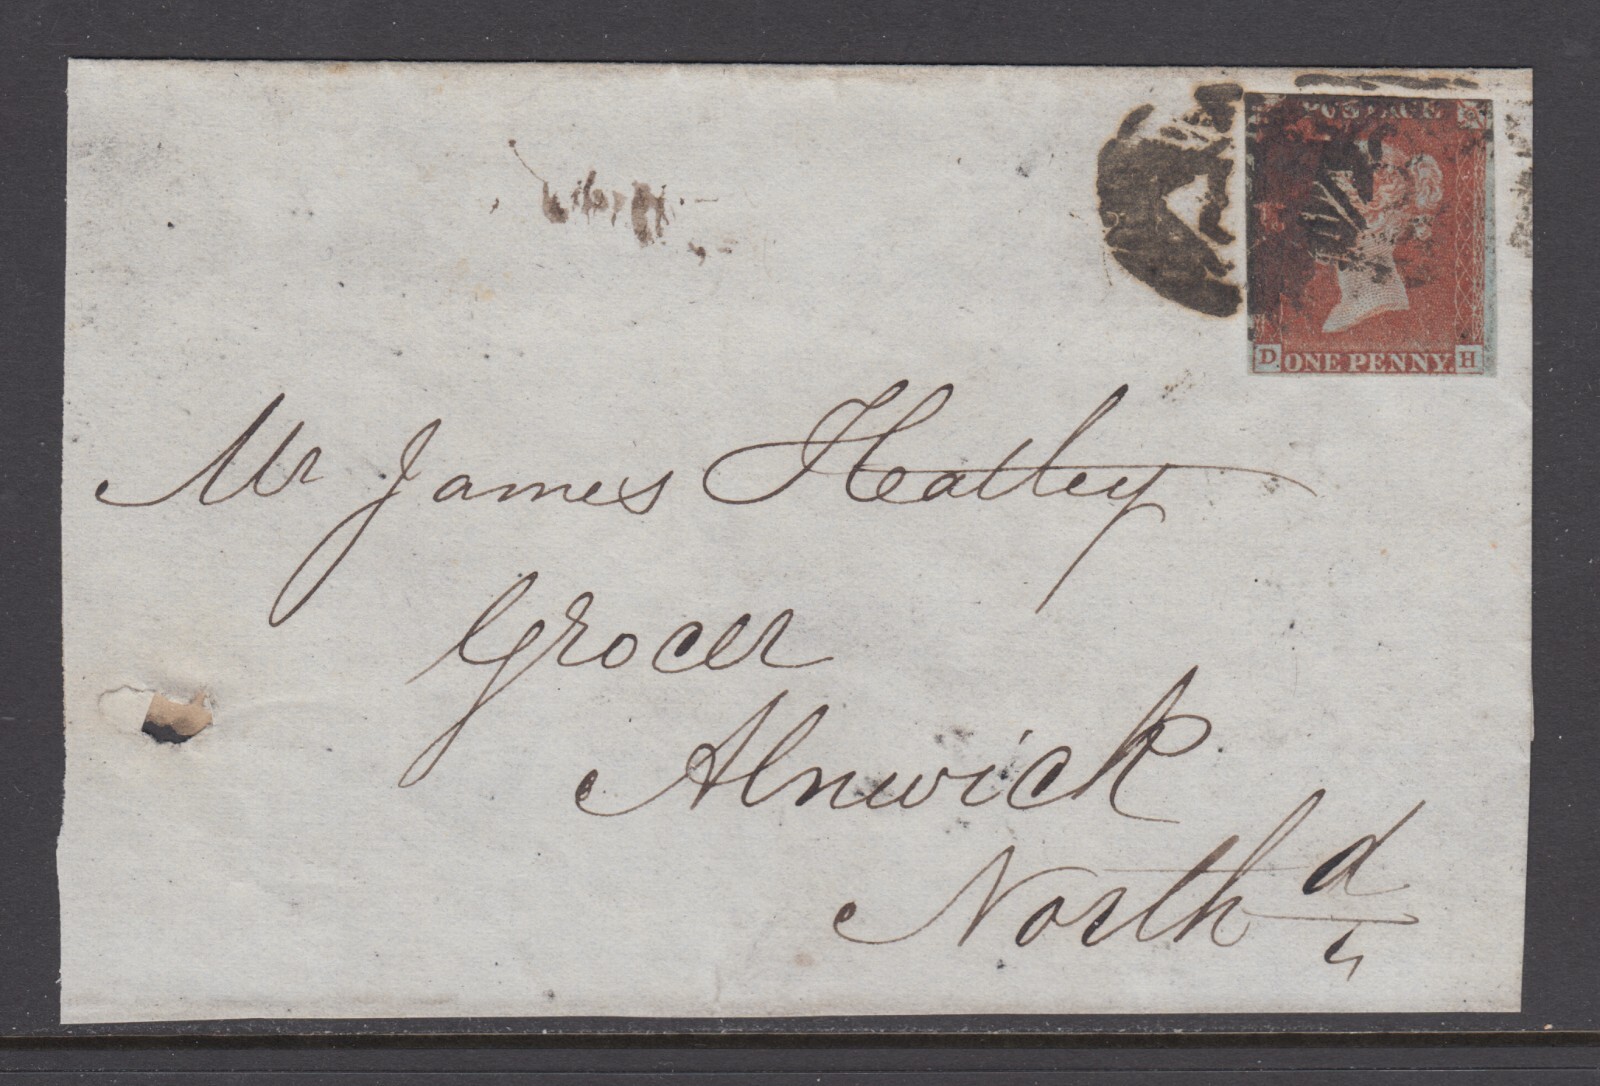 POSTAGE
D ONE PENNY. H
Mr James Hatley
Grocer
Alnwick
North d